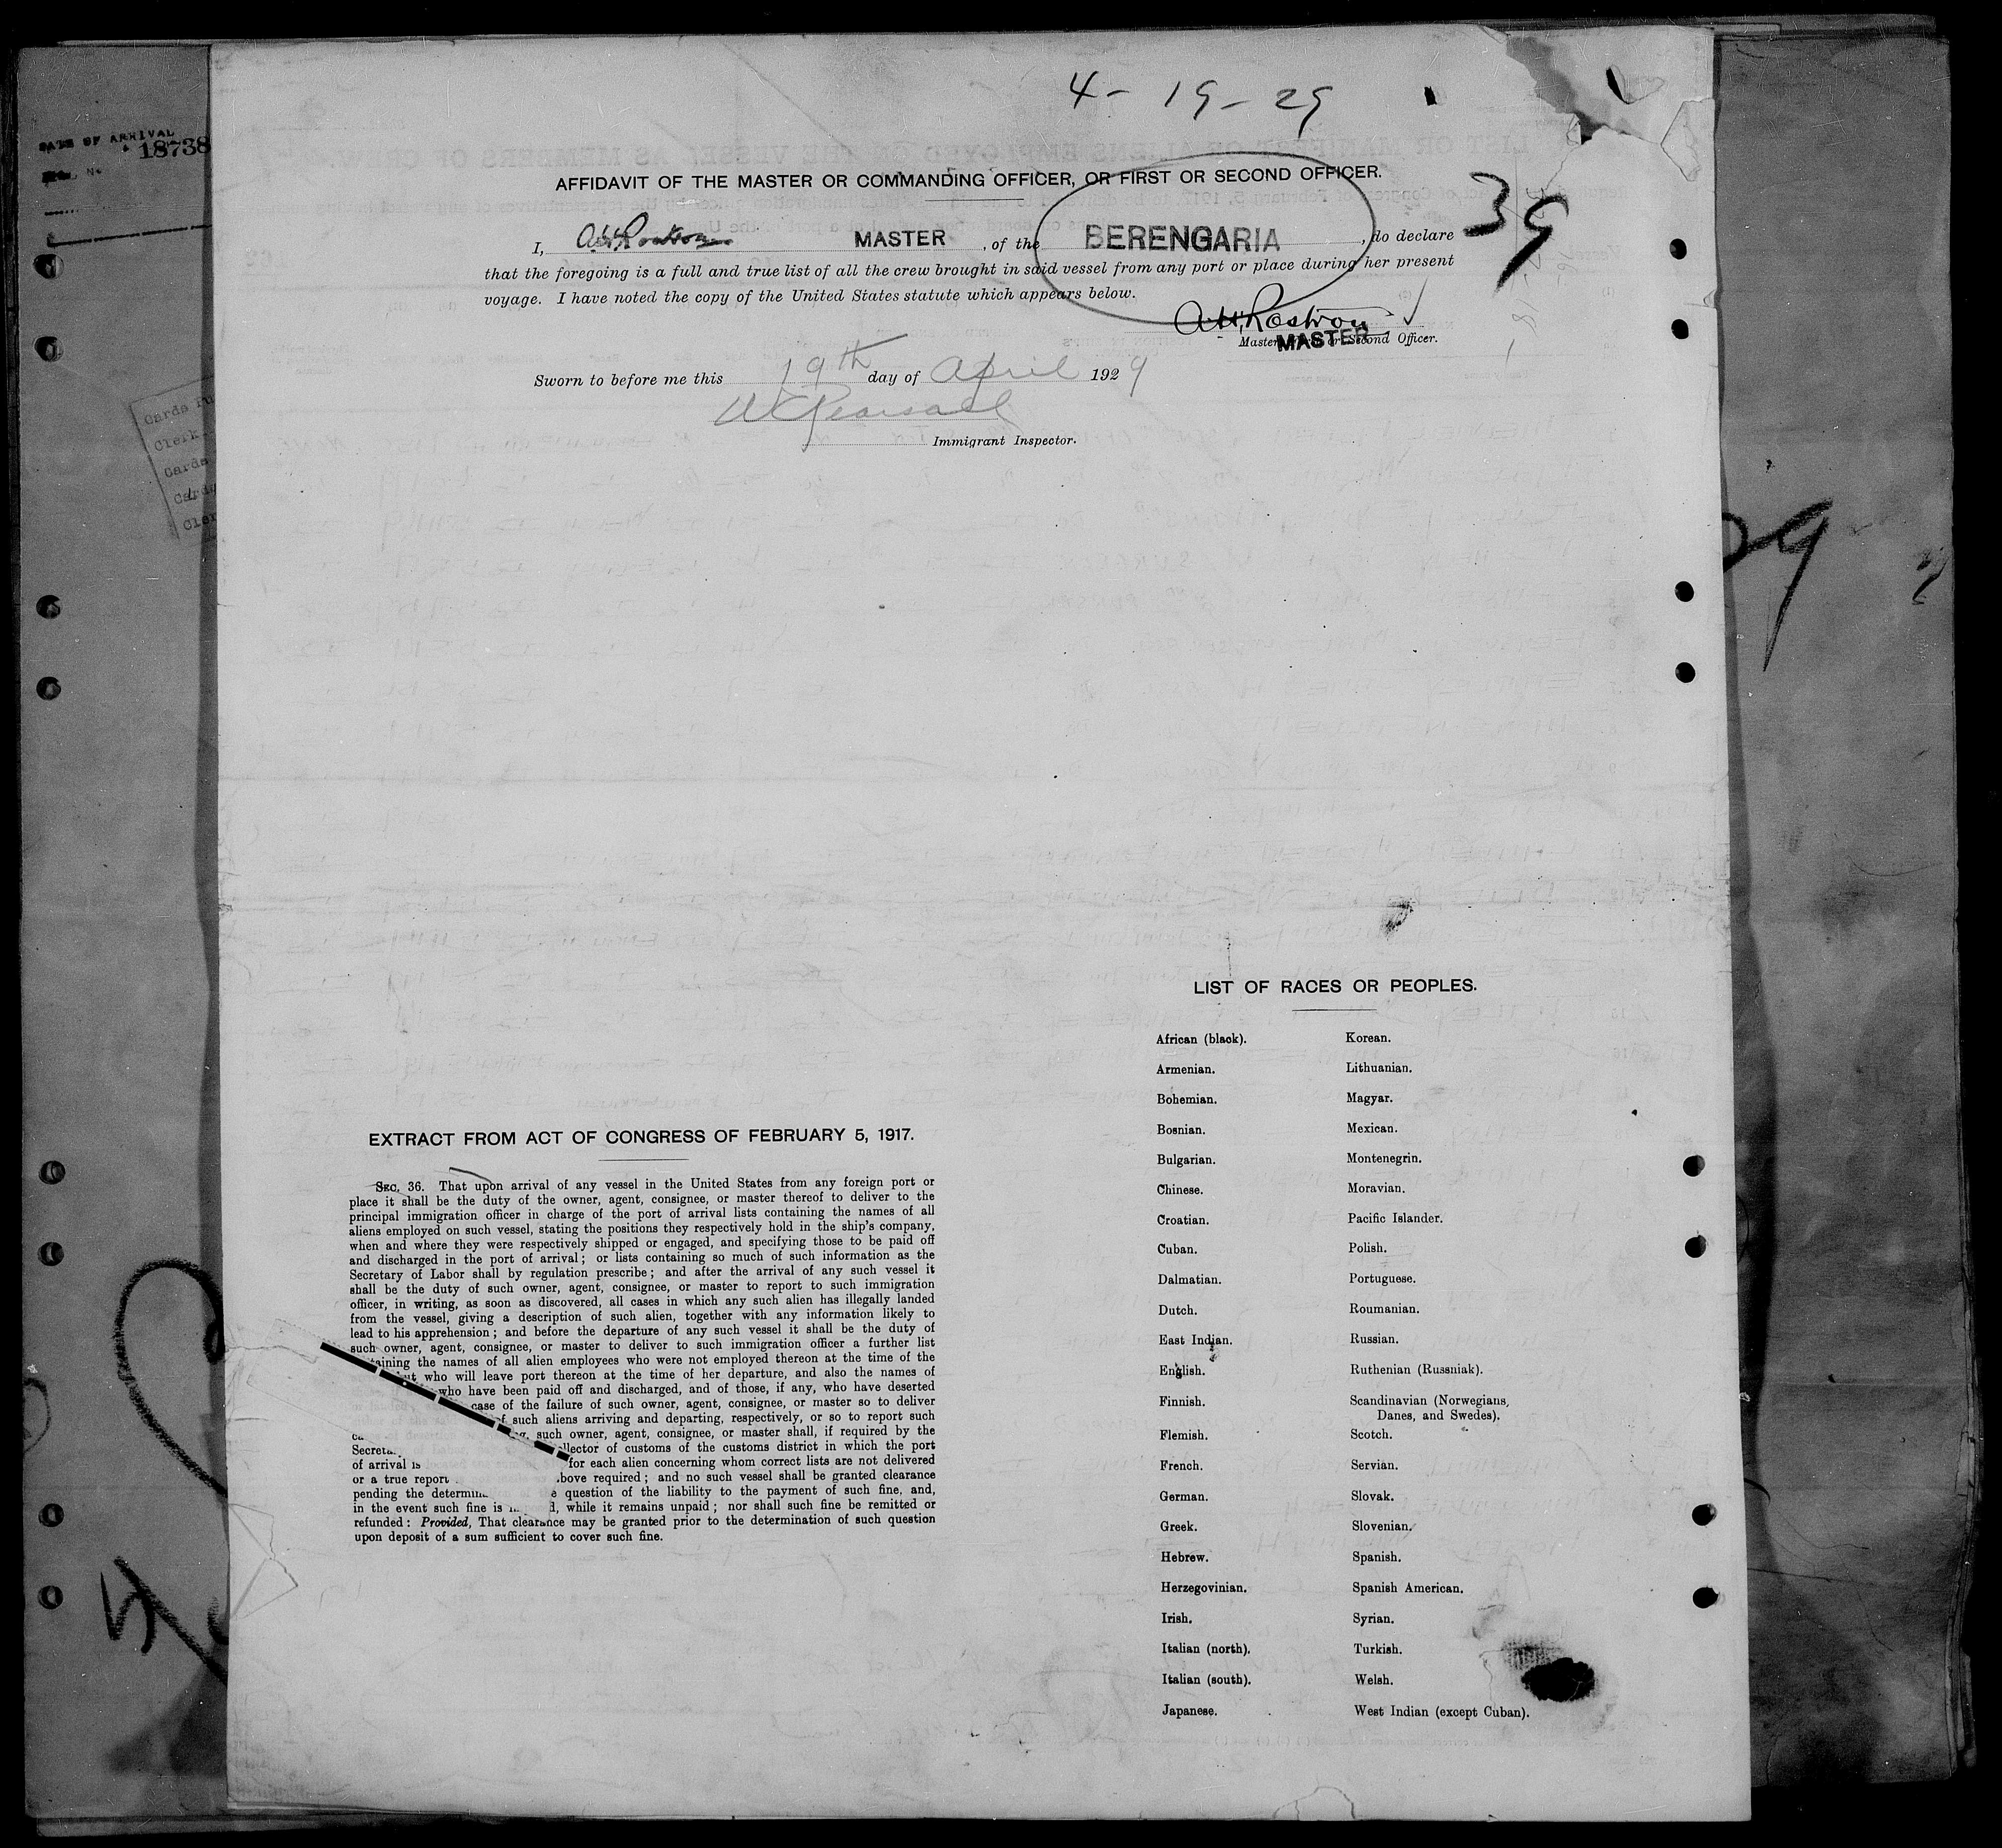 4 - 19 - 29
DATE OF ARRIVAL
18738
AFFIDAVIT OF THE MASTER OR COMMANDING OFFICER, OR FIRST OR SECOND OFFICER.
39
I, A.H. Rostron MASTER, of the BERENGARIA, do declare
that the foregoing is a full and true list of all the crew brought in said vessel from any port or place during her present
voyage. I have noted the copy of the United States statute which appears below.
A.H. Rostron
MASTER
Master, First or Second Officer.
Sworn to before me this 19th day of April 1929
W C Pearsall
Immigrant Inspector.
Cards
Clerk
Cards
Cards
29
LIST OF RACES OR PEOPLES.
African (black). Korean.
Armenian. Lithuanian.
Bohemian. Magyar.
Bosnian. Mexican.
Bulgarian. Montenegrin.
Chinese. Moravian.
Croatian. Pacific Islander.
Cuban. Polish.
Dalmatian. Portuguese.
Dutch. Roumanian.
East Indian. Russian.
English. Ruthenian (Russniak).
Finnish. Scandinavian (Norwegians,
Danes, and Swedes).
Flemish. Scotch.
French. Servian.
German. Slovak.
Greek. Slovenian.
Hebrew. Spanish.
Herzegovinian. Spanish American.
Irish. Syrian.
Italian (north). Turkish.
Italian (south). Welsh.
Japanese. West Indian (except Cuban).
EXTRACT FROM ACT OF CONGRESS OF FEBRUARY 5, 1917.
SEC. 36. That upon arrival of any vessel in the United States from any foreign port or
place it shall be the duty of the owner, agent, consignee, or master thereof to deliver to the
principal immigration officer in charge of the port of arrival lists containing the names of all
aliens employed on such vessel, stating the positions they respectively hold in the ship's company,
when and where they were respectively shipped or engaged, and specifying those to be paid off
and discharged in the port of arrival; or lists containing so much of such information as the
Secretary of Labor shall by regulation prescribe; and after the arrival of any such vessel it
shall be the duty of such owner, agent, consignee, or master to report to such immigration
officer, in writing, as soon as discovered, all cases in which any such alien has illegally landed
from the vessel, giving a description of such alien, together with any information likely to
lead to his apprehension; and before the departure of any such vessel it shall be the duty of
such owner, agent, consignee, or master to deliver to such immigration officer a further list
taining the names of all alien employees who were not employed thereon at the time of the
ut who will leave port thereon at the time of her departure, and also the names of
who have been paid off and discharged, and of those, if any, who have deserted
case of the failure of such owner, agent, consignee, or master so to deliver
of such aliens arriving and departing, respectively, or so to report such
such owner, agent, consignee, or master shall, if required by the
Secreta llector of customs of the customs district in which the port
of arrival is for each alien concerning whom correct lists are not delivered
or a true report bove required; and no such vessel shall be granted clearance
pending the determin e question of the liability to the payment of such fine, and,
in the event such fine is d, while it remains unpaid; nor shall such fine be remitted or
refunded: Provided, That clearance may be granted prior to the determination of such question
upon deposit of a sum sufficient to cover such fine.